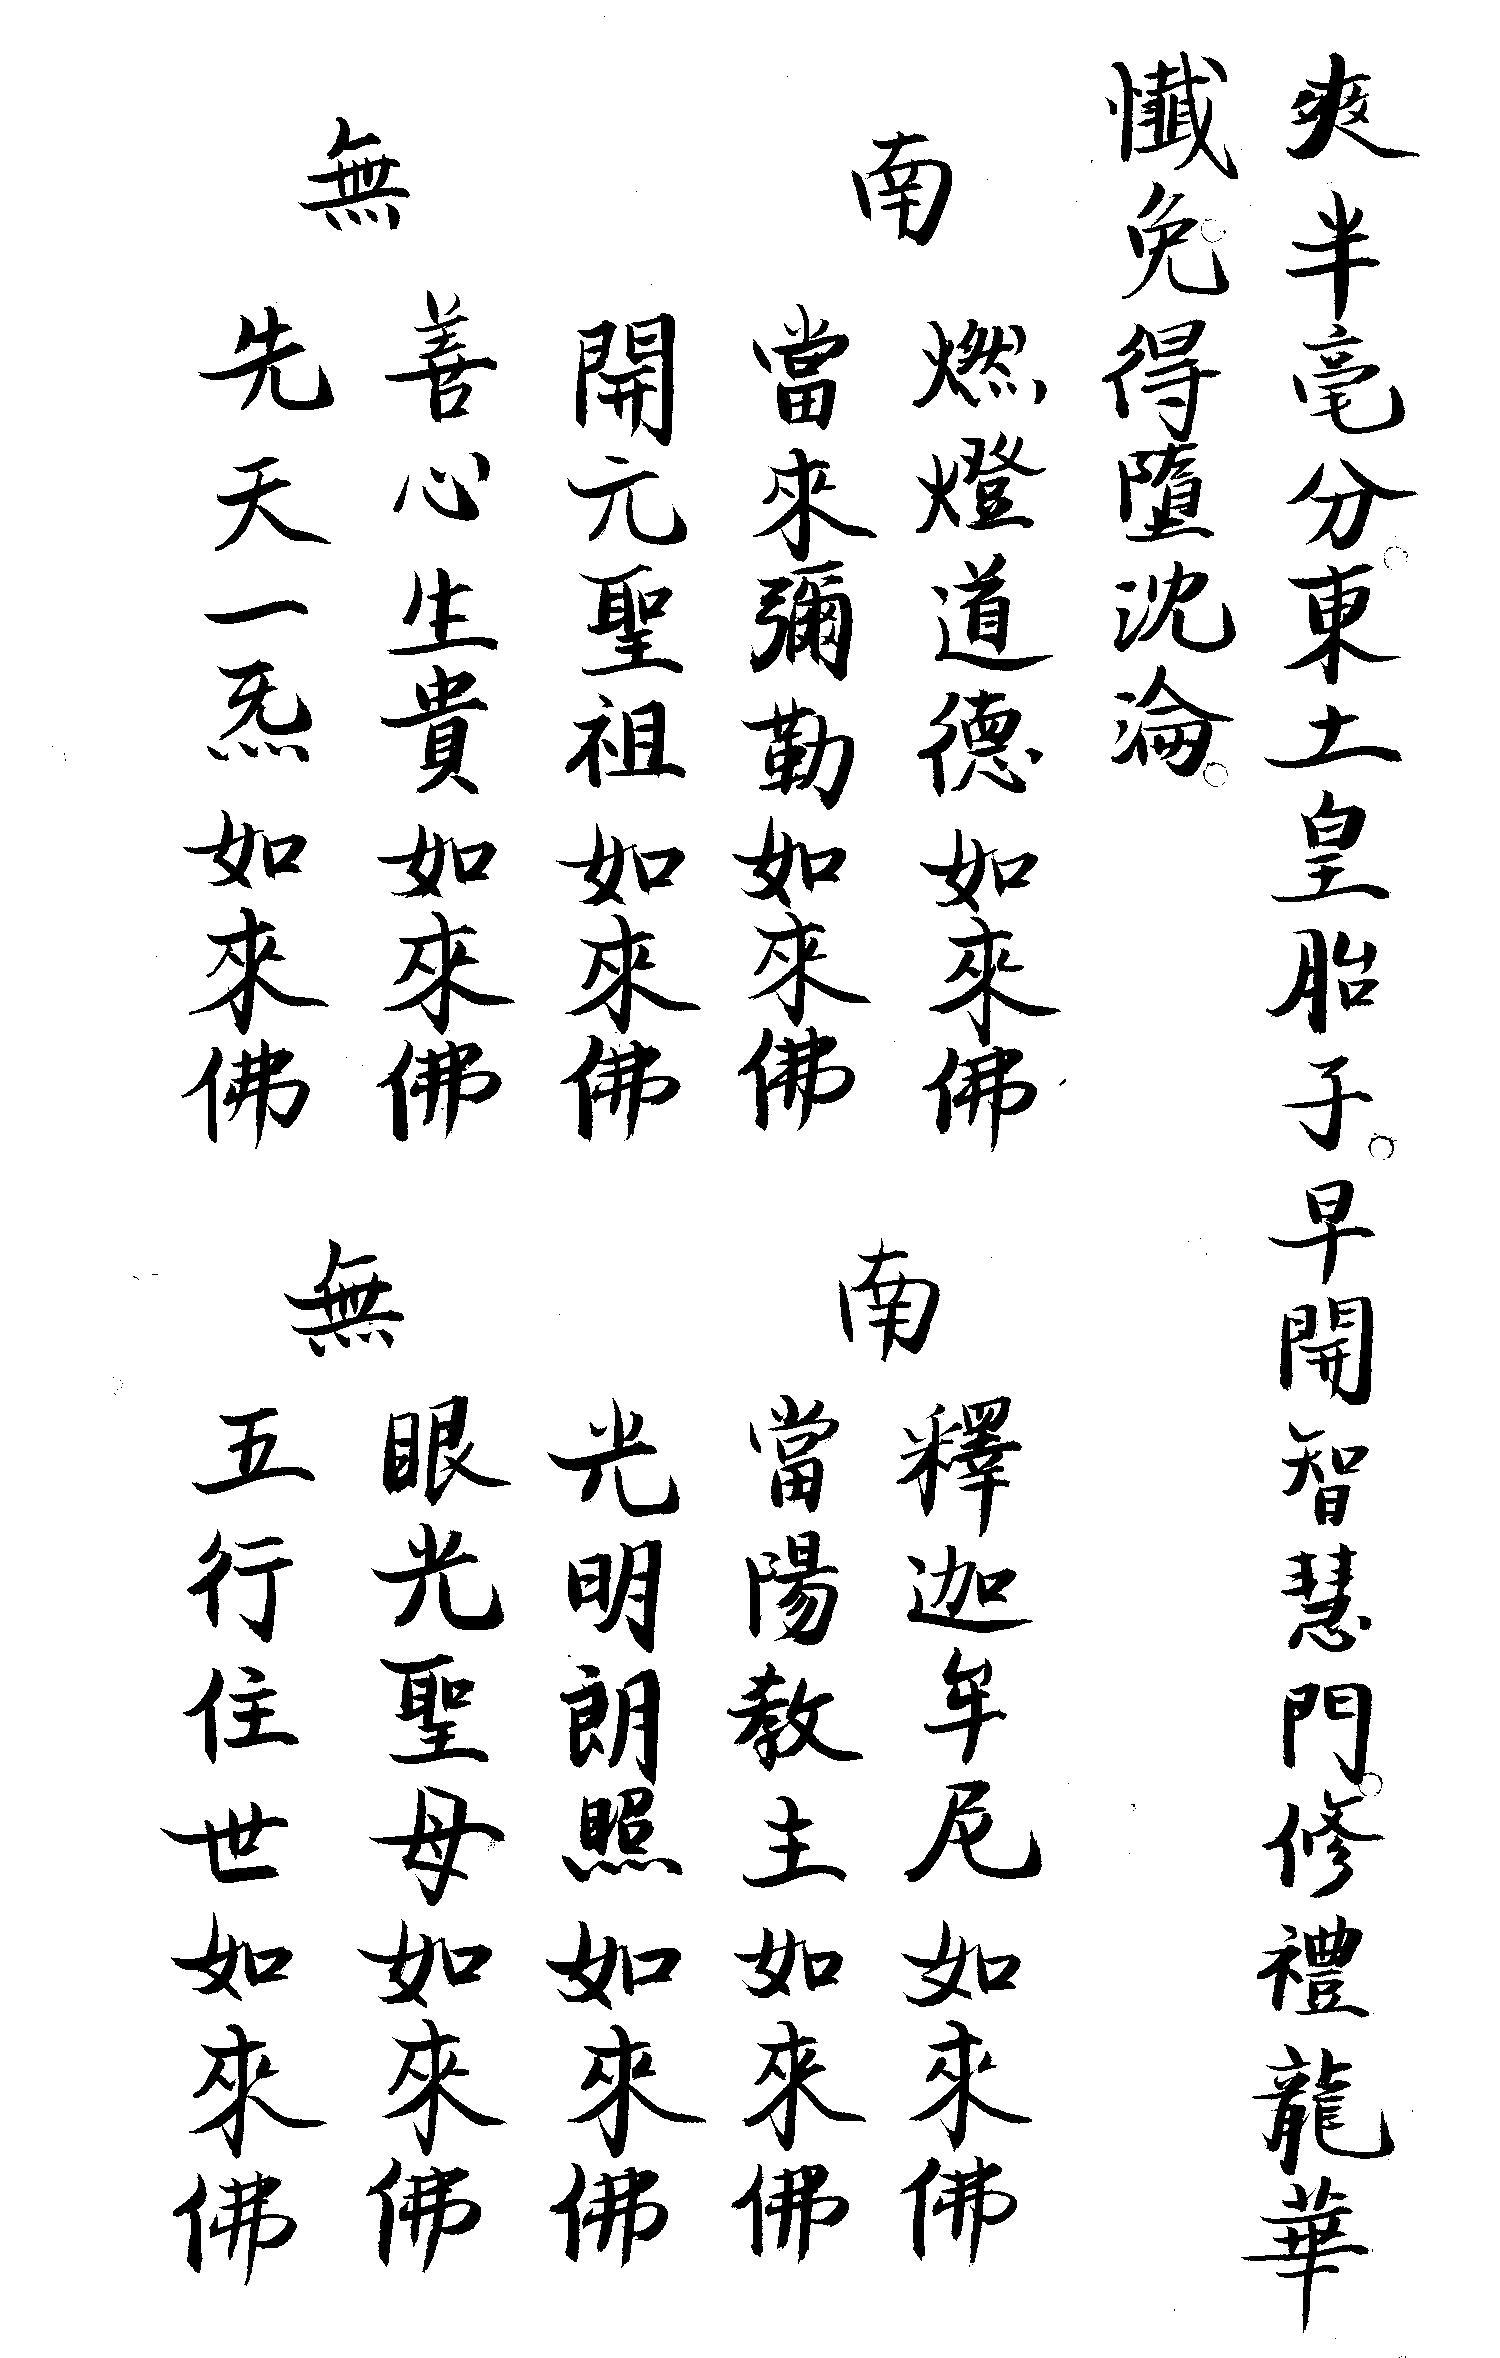 爽半毫分。東土皇胎子。早開智慧門。修禮龍華
懺免。得墮沈淪。
南無
燃燈道德如來佛
當來彌勒如來佛
開元聖祖如來佛
善心生貴如來佛
先天一炁如來佛
南無
釋迦牟尼如來佛
當陽教主如來佛
光明朗照如來佛
眼光聖母如來佛
五行住世如來佛